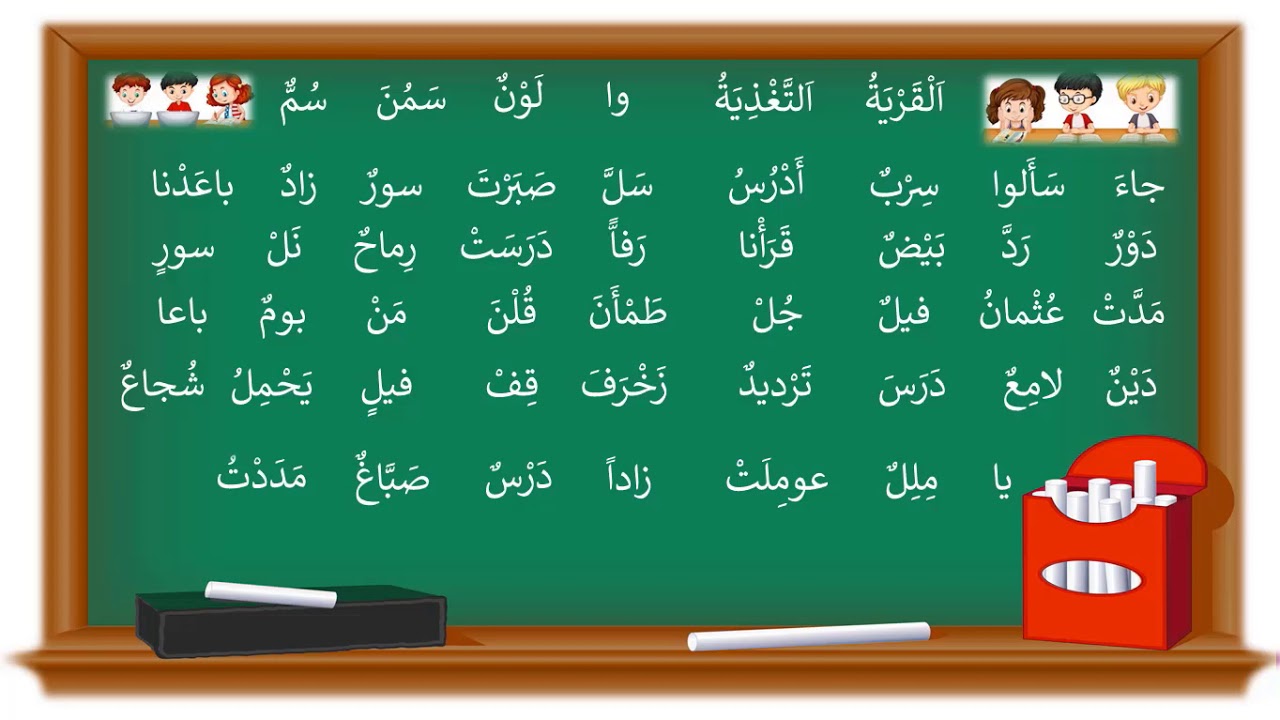 اَلْقَرْيَةُ اَلتَّغْذِيَةُ وا لَوْنٌ سَمُنَ سُمٌّ
جاءَ سَأَلوا سِرْبٌ أَدْرُسُ سَلَّ صَبَرْتَ سورٌ زادٌ باعَدْنا
دَوْرٌ رَدَّ بَيْضٌ قَرَأْنا رَفاًّ دَرَسَتْ رِماحٌ نَلْ سورٍ
مَدَّتْ عُثْمانُ فيلٌ جُلْ طَمْأَنَ قُلْنَ مَنْ بومٌ باعا
دَيْنٌ لامِعٌ دَرَسَ تَرْديدٌ زَخْرَفَ قِفْ فيلٍ يَحْمِلُ شُجاعٌ
يا مِلِلٌ عومِلَتْ زاداً دَرْسٌ صَبَّاغٌ مَدَدْتُ